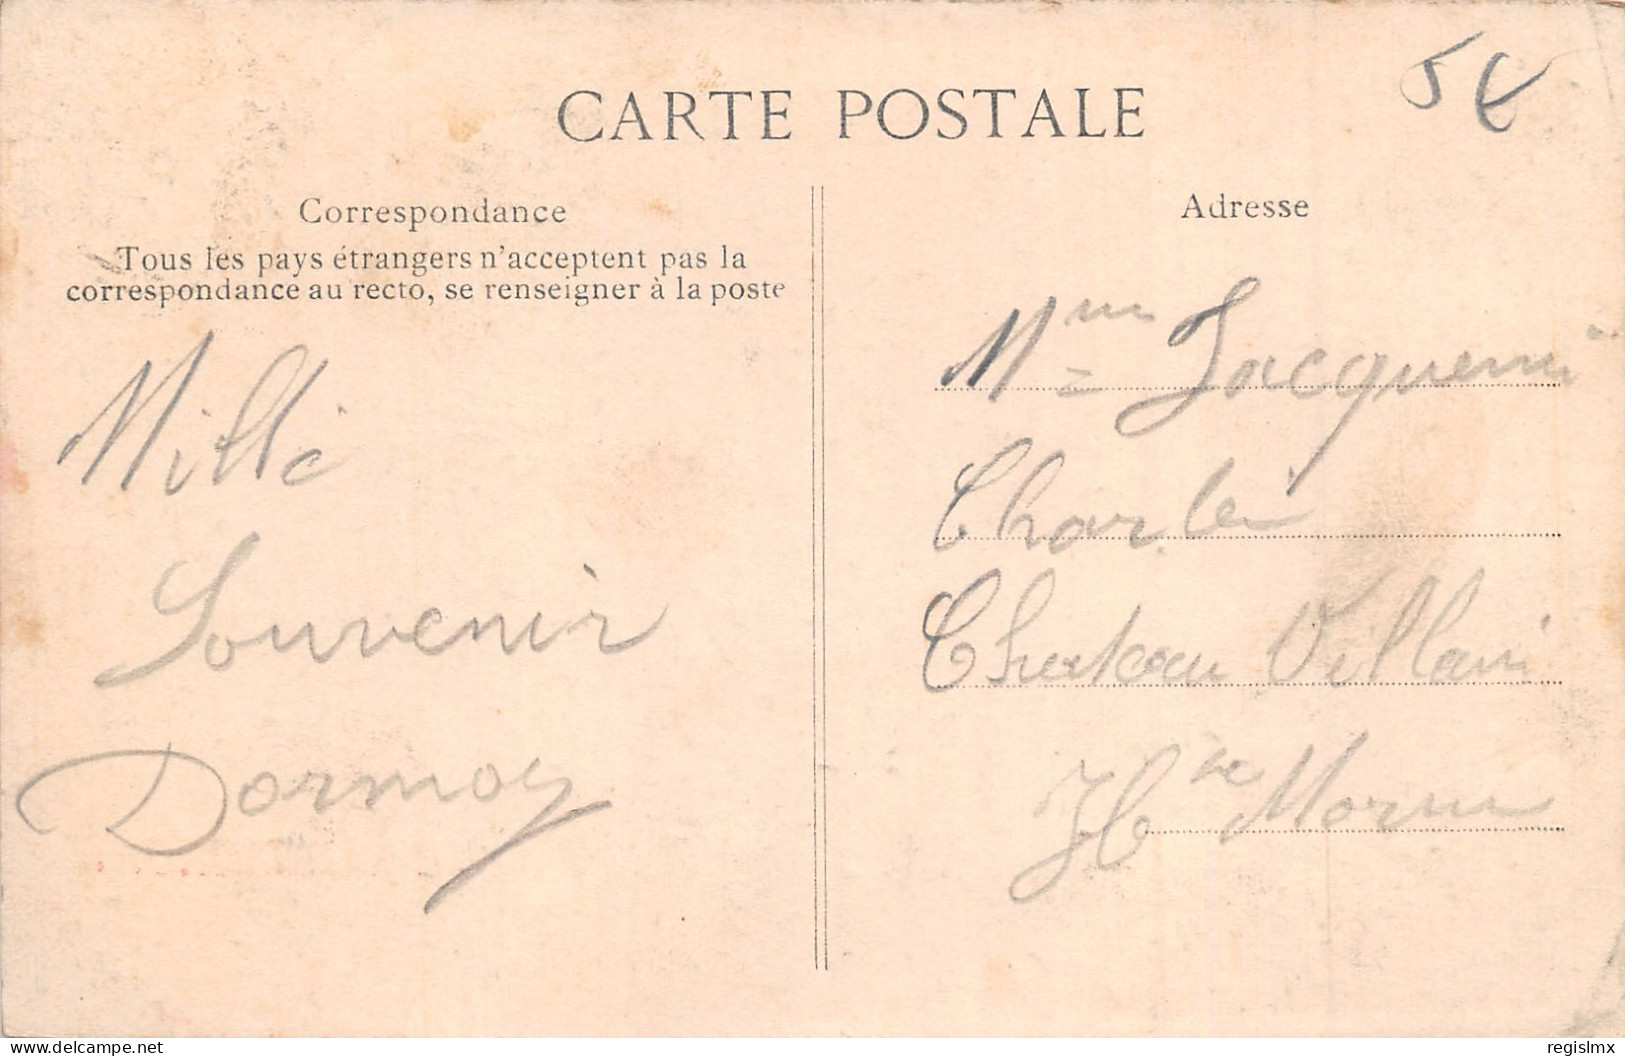 5€
CARTE POSTALE
Correspondance
Tous les pays étrangers n'acceptent pas la
correspondance au recto, se renseigner à la poste
Mille
Souvenir
Dormoy
Adresse
Mme Jacquemin
Charles
Chateau Villain
Hte Marne
www.delcampe.net
regislmx